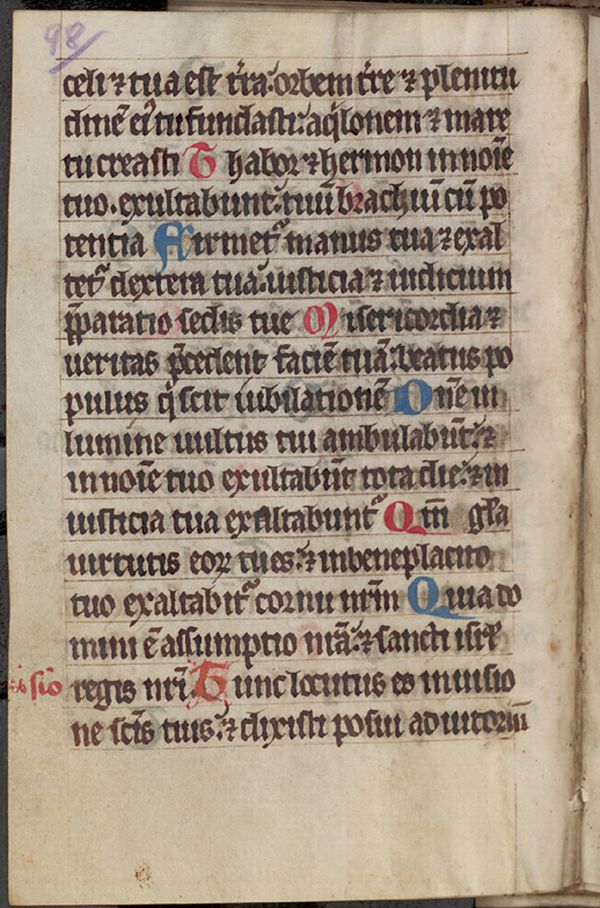 98
celi ⁊ tua est t̄ra: orbem t̄re ⁊ plenitu
dinē ei᷒ tu fundasti: aq̇lonem ⁊ mare
tu creasti Thabor ⁊ hermon in noīe
tuo exultabunt: tuū brachiū cū po
tentia Firmet᷑ manus tua ⁊ exal
tet᷑ dextera tua: iusticia ⁊ iudicium
p̄paratio sedis tue Misericordia ⁊
ueritas p̄cedent faciē tuā: beatus po
pulus q̇ scit iubilationē Dn̄e in
lumine uultus tui ambulabūt: ⁊
in noīe tuo exultabūt tota die: ⁊ in
iusticia tua exaltabunt᷑ Qm̄ gl̄a
uirtutis eoꝝ tu es: ⁊ in beneplacito
tuo exaltabit᷑ cornu nr̄m Quia do
mini ē assumptio nr̄a: ⁊ sancti isrl̄
regis nr̄i Tunc locutus es in uisio
ne sc̄is tuis: ⁊ dixisti posui adiutoriū